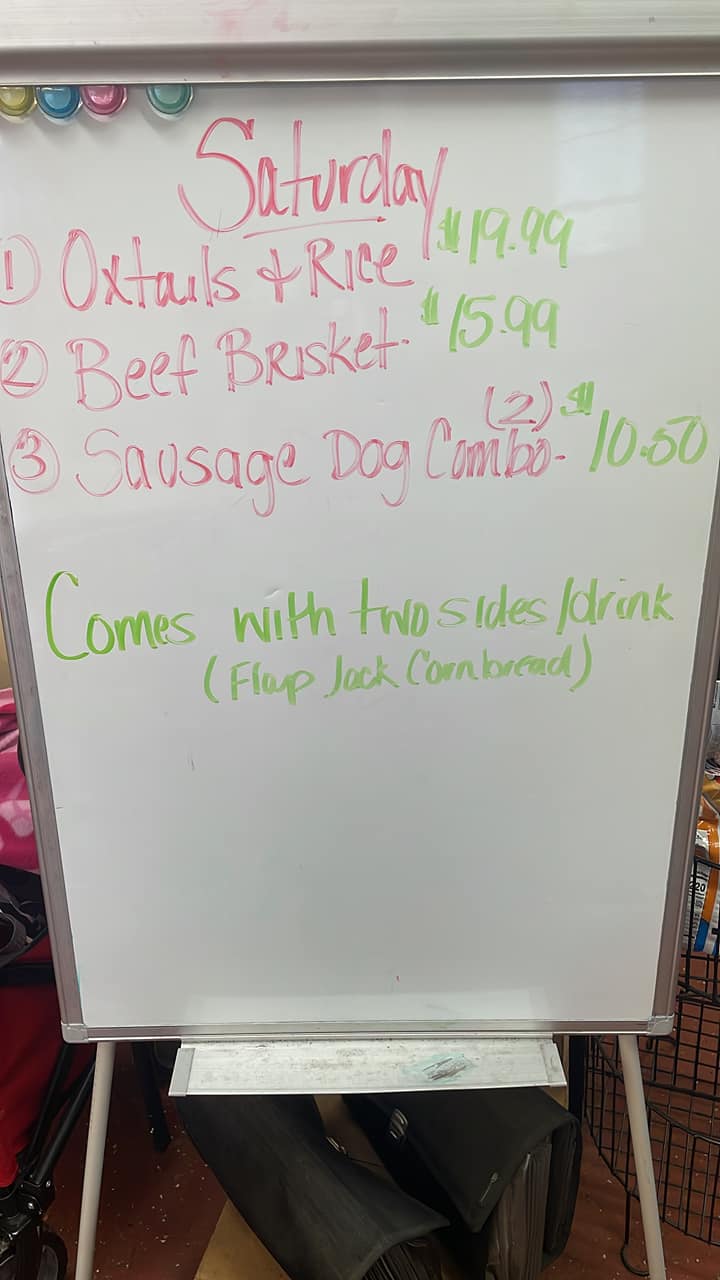 Saturday
1) Oxtails & Rice $19.99
2 Beef Brisket- $15.99
3 Sausage Dog Combo- (2) $10.50
Comes with two sides/drink
(Flap Jack Cornbread)
20